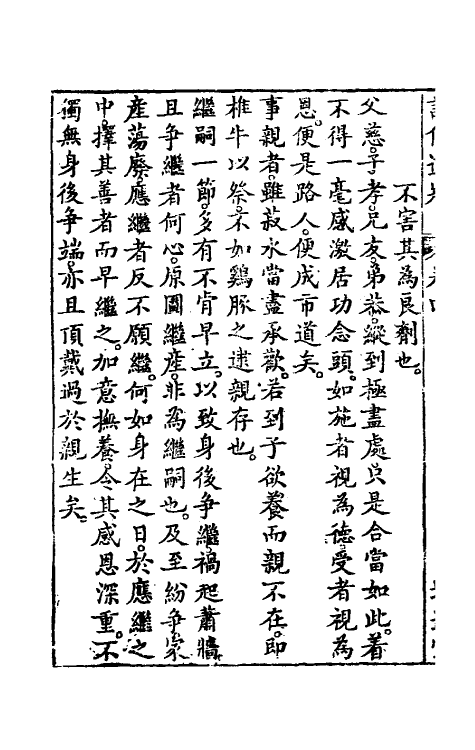 不害其為良劑也。
父慈。子孝。兄友。弟恭。縱到極盡處。只是合當如此。着
不得一毫感激居功念頭。如施者視為德。受者視為
恩。便是路人。便成市道矣。
事親者。雖菽水當盡承歡。若到子欲養而親不在。即
椎牛以祭。不如鷄豚之逮親存也。
繼嗣一節。多有不肯早立。以致身後爭繼。禍起蕭牆。
且爭繼者何心。原圖繼産。非為繼嗣也。及至紛爭。家
産蕩廢。應繼者反不願繼。何如身在之日。於應繼之
中。擇其善者而早繼之。加意撫養。令其感恩深重。不
獨無身後爭端。亦且頂戴過於親生矣。